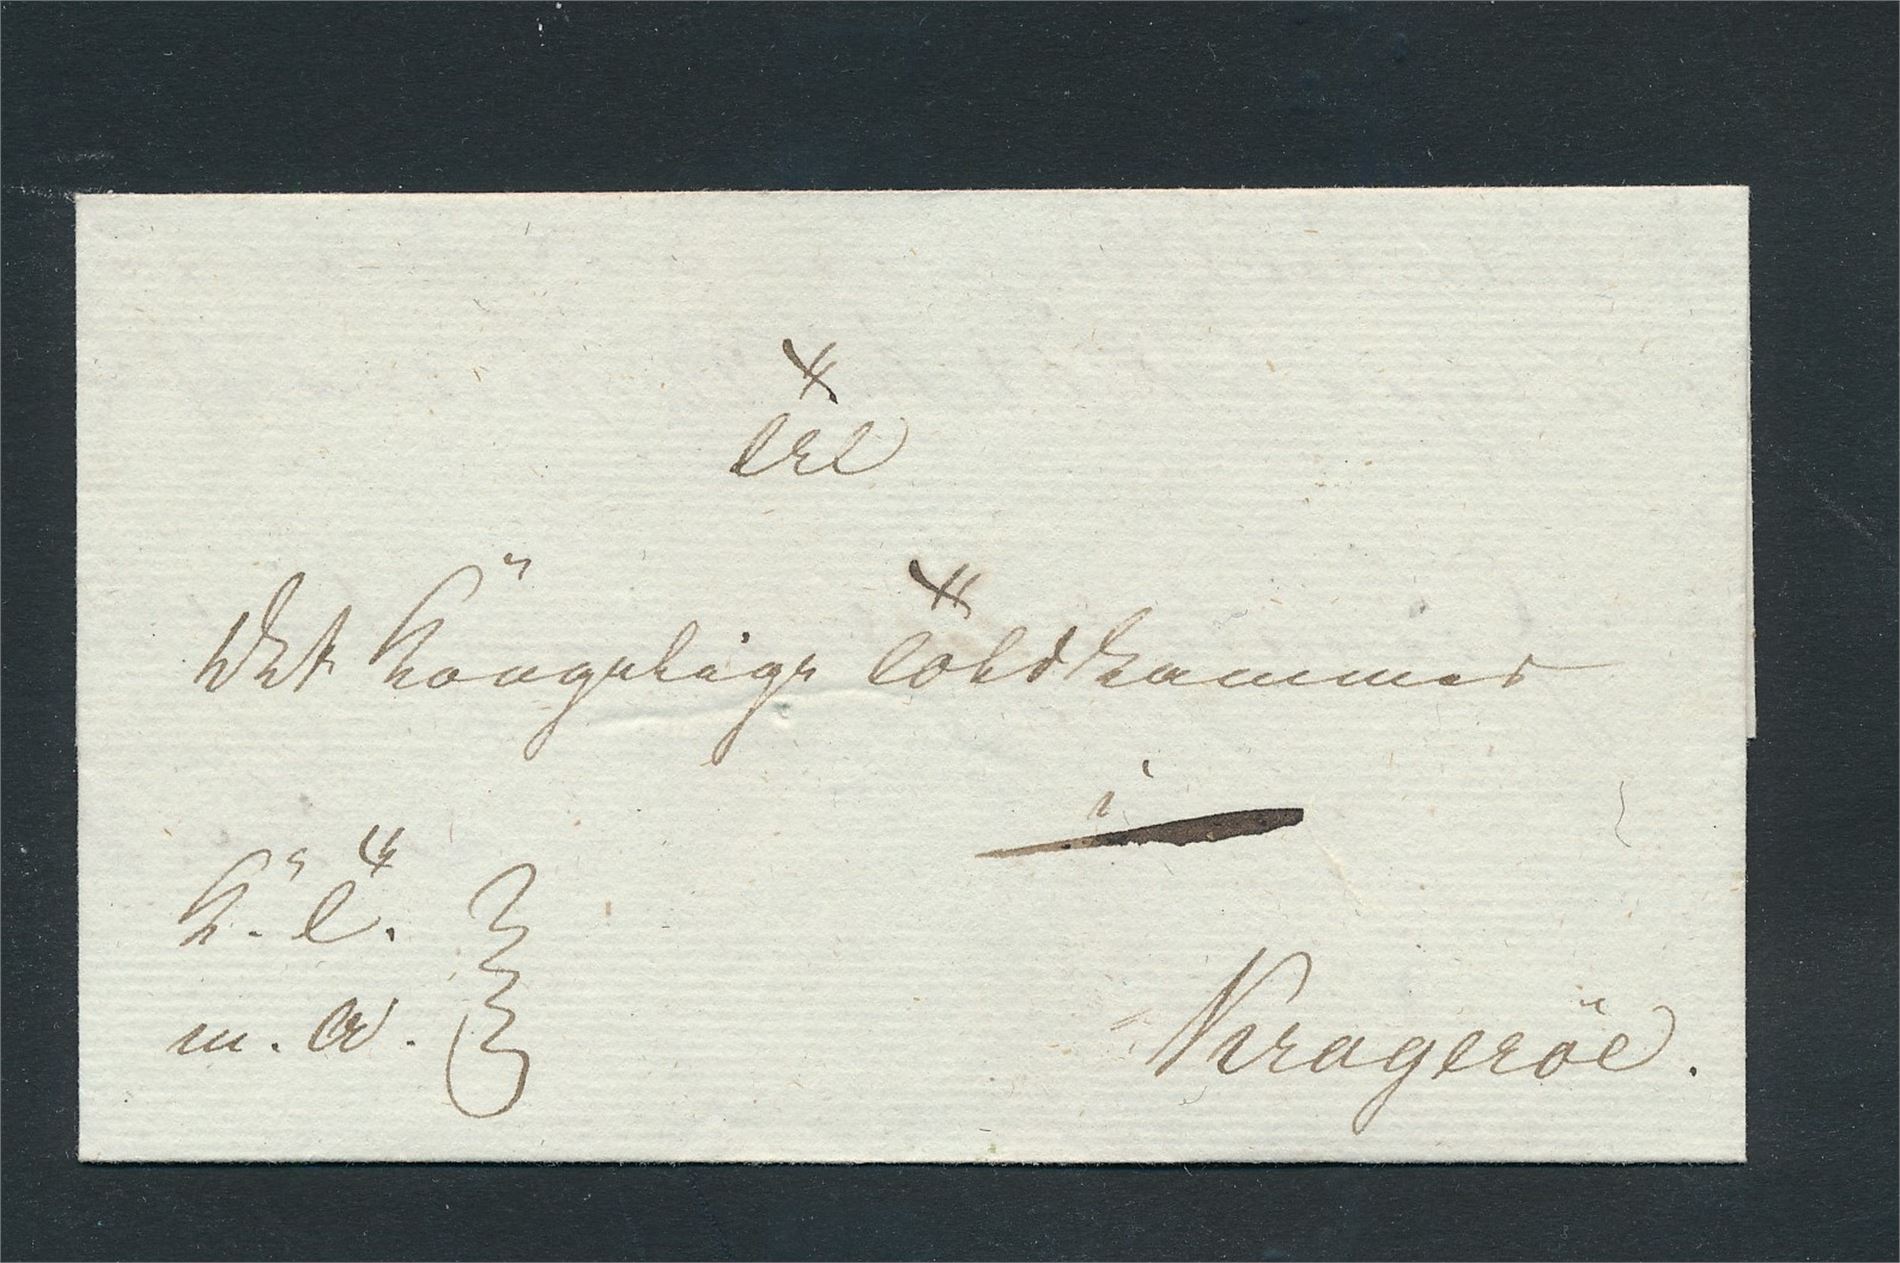 Til
Det Kongelige Toldkammer
i
K. T.
m. A.
Krageröe.